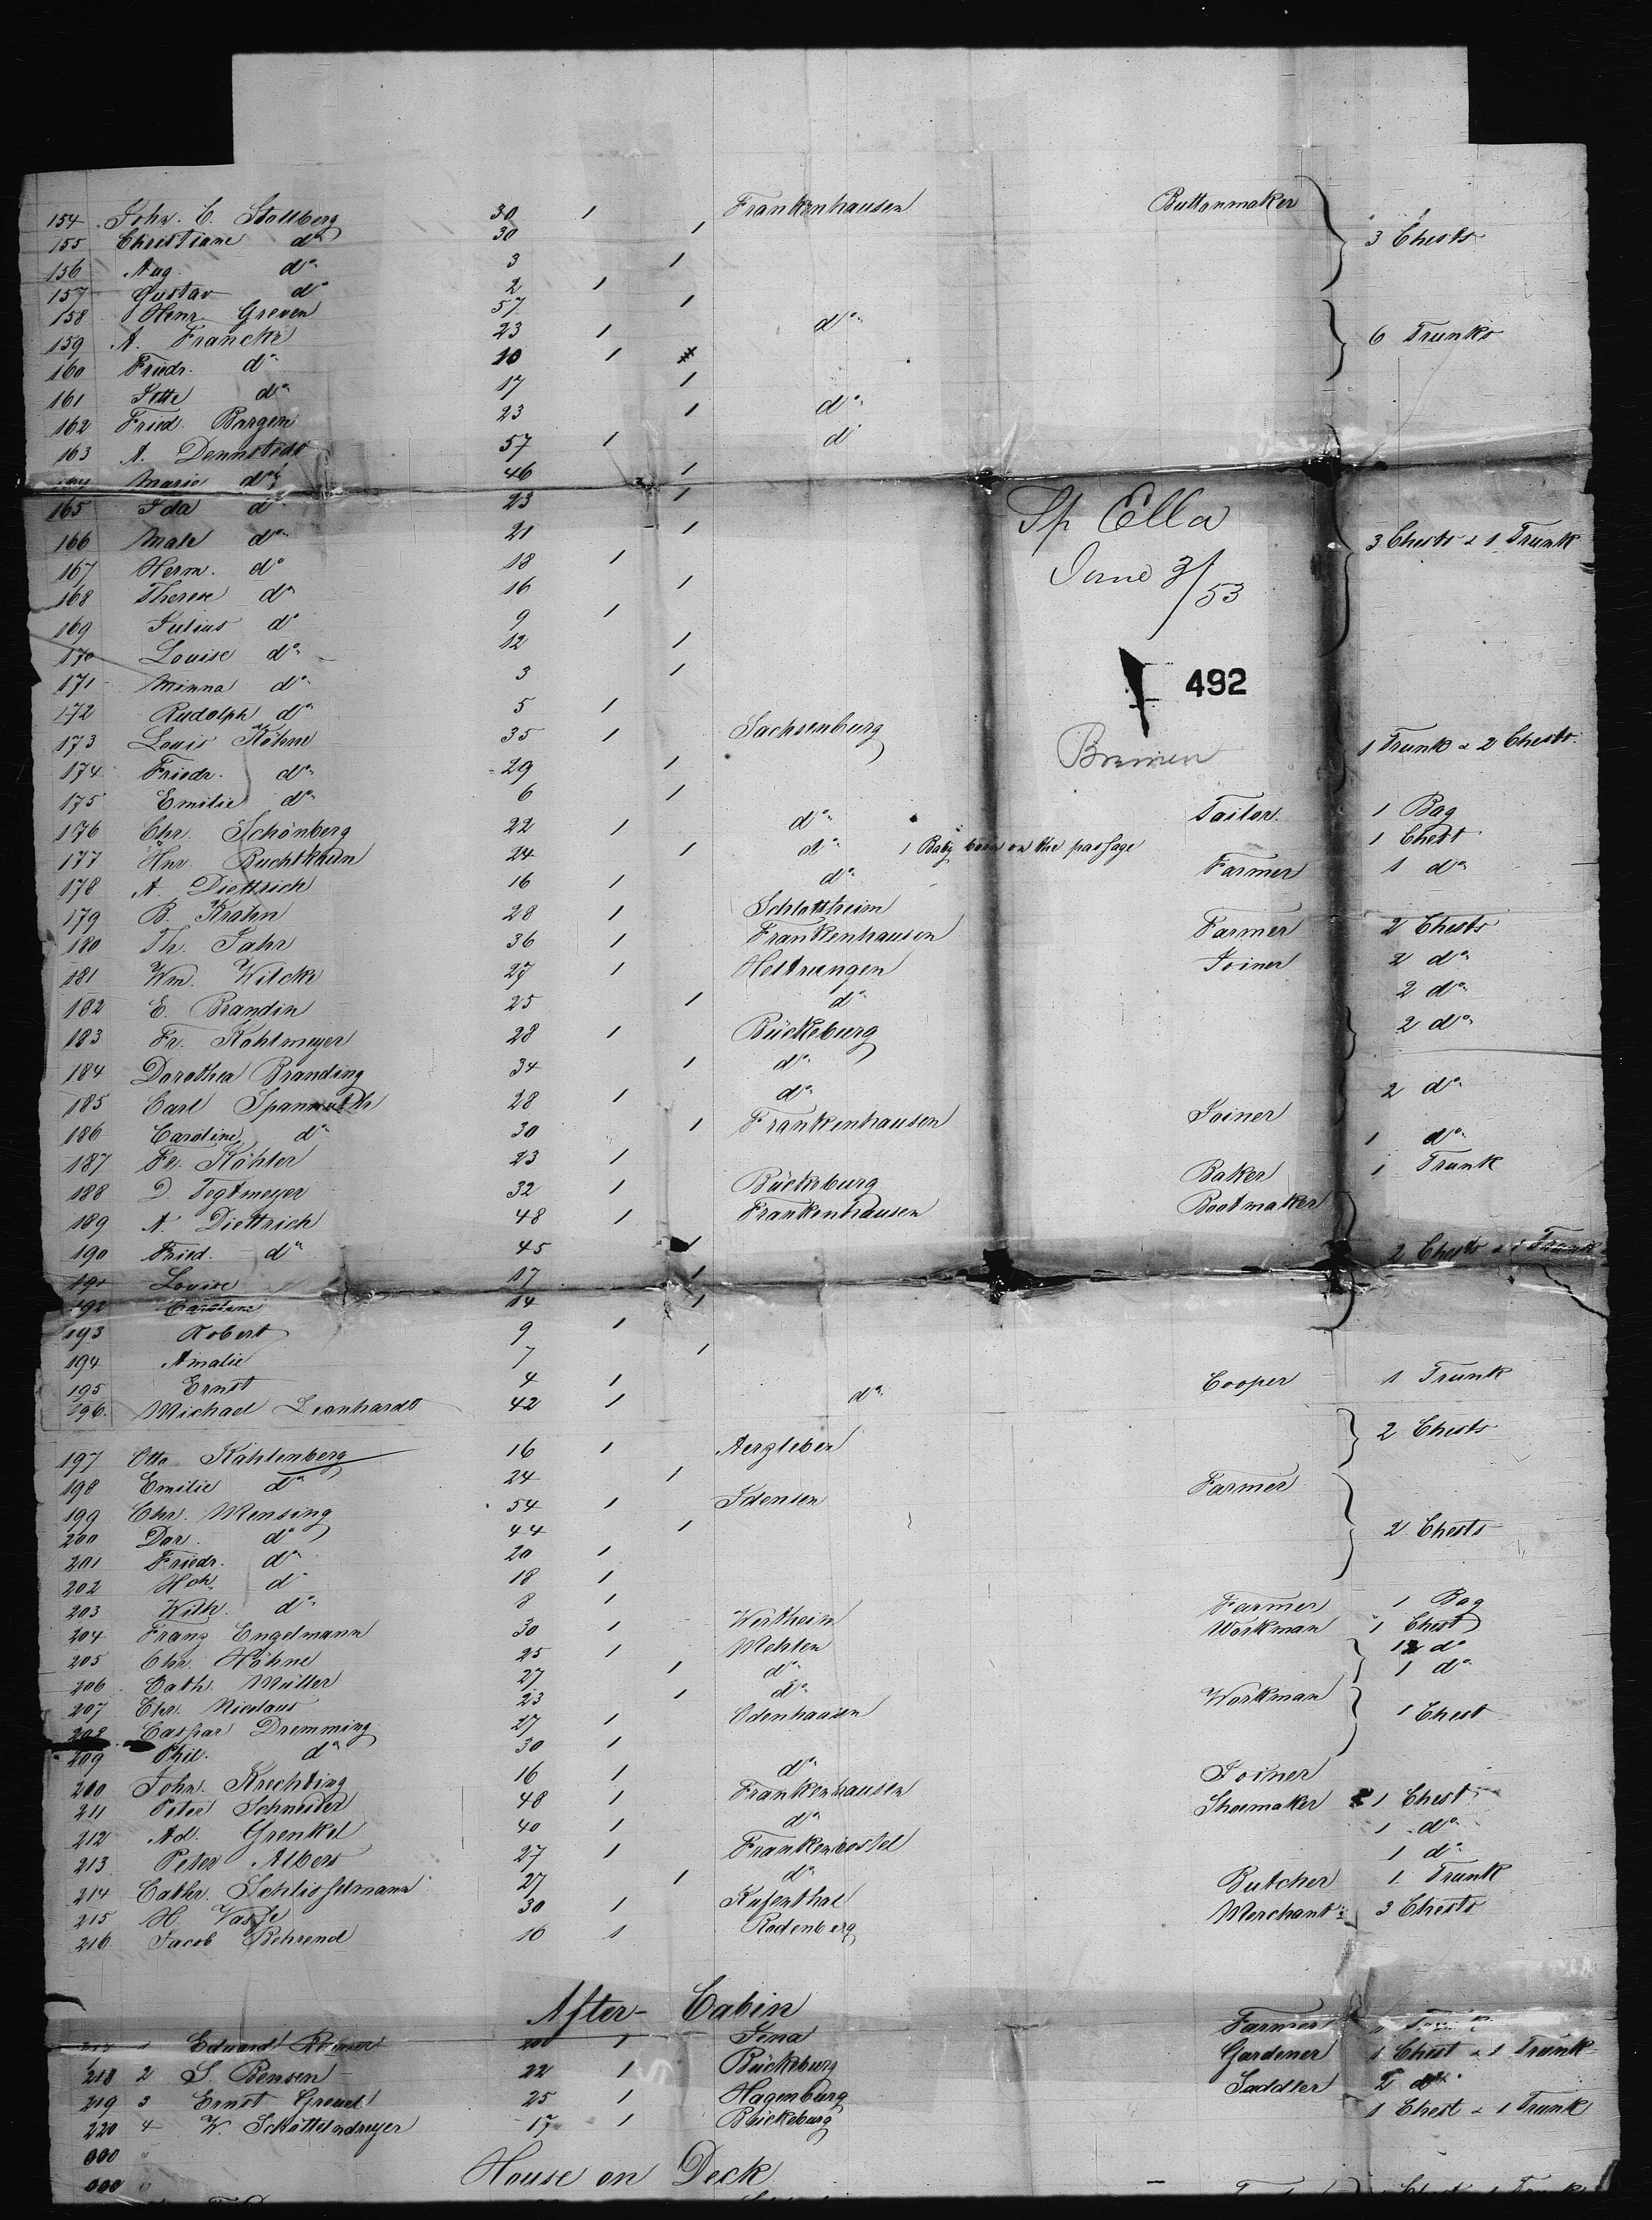 154 John. C. Stollberg 30 1 Frankenhausen Buttonmaker
155 Christiane do 30 1 3 Chests
156 Aug. do 3 1
157 Gustav do 2 1
158 Henr. Greven 57 1
159 A. Francke 23 1 do 6 Trunks
160 Friedr. do 10 1
161 Jette do 17 1
162 Fried. Bargen 23 1 do
163 A. Dennstedt 57 1 d
Marie do 46 1
165 Ida do 23 1
166 Male do 21 1 3 Chests & 1 Trunk
167 Herm. do 18 1
168 Therese do 16 1
169 Julius do 9 1
170 Louise do 12 1
171 Minna do 3 1
172 Rudolph do 5 1
Sp Ella
June 3/53
492
Bremen
173 Louis Köhne 35 1 Sachsenburg 1 Trunk & 2 Chests
174 Friedr. do 29 1
175 Emilie do 6 1
176 Chr. Schönberg 22 1 do Tailor. 1 Bag
177 Hnr. 24 1 do 1 Baby born on the passage 1 Chest
178 A. Diettrich 16 1 do Farmer 1 do
179 B. Krahn 28 1 Schlottheim
180 Th. Jahr 36 1 Frankenhausen Farmer 2 Chests
181 Wm. Wilcke 27 1 Heldrungen Joiner 2 do
182 E. Brandin 25 1 do 2 do
183 Fr. Kohlmeyer 28 1 Bückeburg 2 do
184 Dorothea Branding 34 1 do
185 Carl Spannuth 28 1 do 2 do
186 Caroline do 30 1 Frankenhausen Joiner
187 Fr. Köhler 23 1 1 do
188 D. Tegtmeyer 32 1 Bückeburg Baker 1 Trunk
189 A Diettrich 48 1 Frankenhausen Bootmaker
190 Fried. do 45 1 2 Chests & 1 Trunk
191 Louise 17 1
192 14 1
193 Robert 9 1
194 Amalie 7 1
195 Ernst 4 1
196. Michael Leonhardt 42 1 do Cooper 1 Trunk
197 Otto Kahlenberg 16 1 Aerzleben 2 Chests
198 Emilie do 24 1
199 Chr. Mensing 54 1 Idensen Farmer
200 Dor. do 44 1 2 Chests
201 Friedr. do 20 1
202 Hch. do 18 1
203 Wilh. do 8 1
204 Franz Engelmann 30 1 Wertheim Farmer 1 Bag
205 Chr. Höhne 25 1 Mehlen Workman 1 Chest
206 Cath. Müller 27 1 do do
207 Chr. Nicolaus 23 1 do 1 do
208 Caspar Dremming 27 1 Odenhausen Workman 1 Chest
209 Phil. do 30 1
200 John. Krechting 16 1 do Joiner
211 Peter Schneider 48 1 Frankenhausen Shoemaker 1 Chest
212 Ad. Grenkel 40 1 do 1 do
213 Peter Albers 27 1 1 do
214 Cathr. Schlisselmann 27 1 do Butcher 1 Trunk
215 H. Vasse 30 1 Merchant 3 Chests
216 Jacob Behrend 16 1 Rodenberg
After-Cabin
1 Eduard 20 1 Jena Farmer
218 2 S. Bensen 22 1 Bückeburg Gardener 1 Chest & 1 Trunk
219 3 Ernst Greuel 25 1 Hagenburg Saddler 2 do
220 4 W. Schöttelndreyer 17 1 Bückeburg 1 Chest & 1 Trunk
000
000
House on Deck